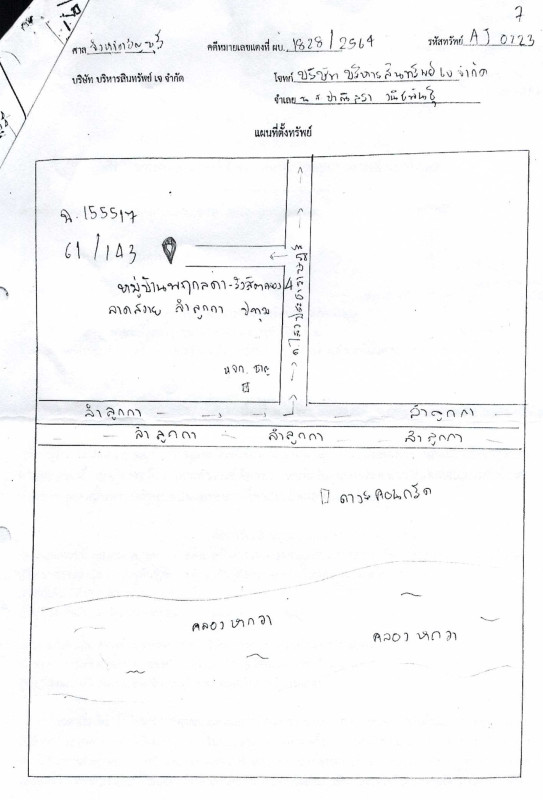 7
ศาล จังหวัดธัญบุรี คดีหมายเลขแดงที่ ผบ. 1828/2564 รหัสทรัพย์ AJ 0223
บริษัท บริหารสินทรัพย์ เจ จำกัด โจทก์ บริษัท บริหารสินทรัพย์ เจ จำกัด
จำเลย น.ส
แผนที่ตั้งทรัพย์
ฉ.155517
61/143
หมู่บ้านพฤกลดา-รังสิตคลอง 4
ลาดสวาย ลำลูกกา ปทุม
หจก.
ลำลูกกา ลำลูกกา
ลำลูกกา ลำลูกกา ลำลูกกา
ดาวคอนกรีต
คลองหกวา
คลองหกวา